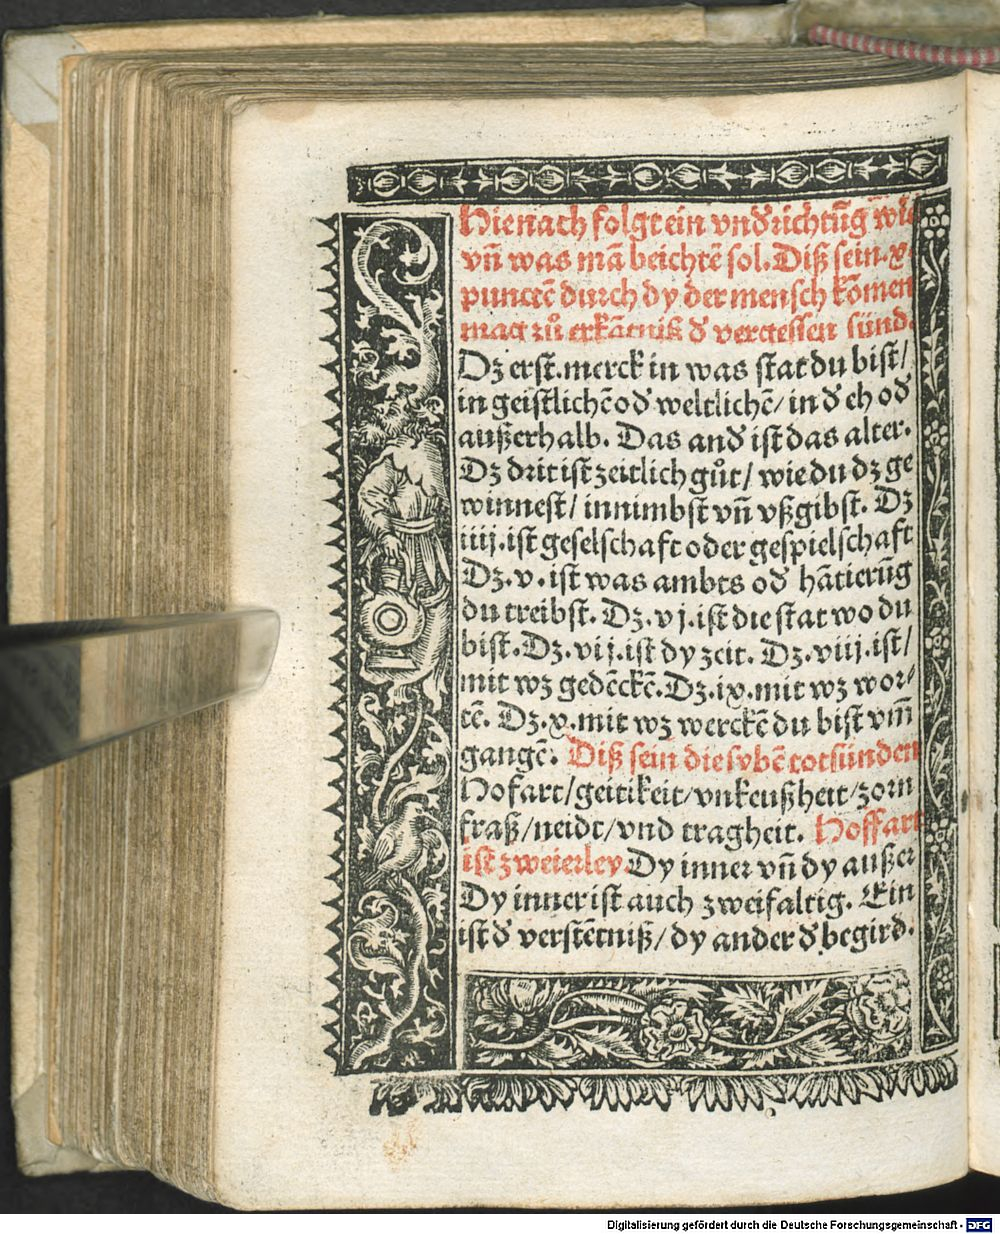 Hienach folgt ein vnd̕richtūg wie
vn̄ was mā beichtē sol. Diß sein .x.
punctē durch dy der mensch kōmen
mag zů erkātniß d̕ vergessen sünd.
Dz erst. merck in was stat du bist/
in geistlichē od̕ weltlichē/ in d̕ eh od̕
außerhalb. Das and̕ ist das alter.
Dz drit ist zeitlich gůt/ wie du dz ge
winnest/ innimbst vn̄ vßgibst. Dz
iiij. ist geselschaft oder gespielschaft
Dz .v. ist was ambts od̕ hātierūg
du treibst. Dz .vj. ist die stat wo du
bist. Dz .vij. ist dy zeit. Dz .viij. ist/
mit wz gedēckē. Dz .ix. mit wz wor⸗
tē. Dz .x. mit wz werckē du bist vm̄
gangē. Diß sein die sybē totsünden
Hofart/geitikeit/vnkeußheit/zorn
fraß/neidt/vnd tragheit. Hoffart
ist zweierley. Dy inner vn̄ dy außer
Dy inner ist auch zweifaltig. Ein
ist d̕ verstētniß/ dy ander d̕ begird.
Digitalisierung gefördert durch die Deutsche Forschungsgemeinschaft - DFG